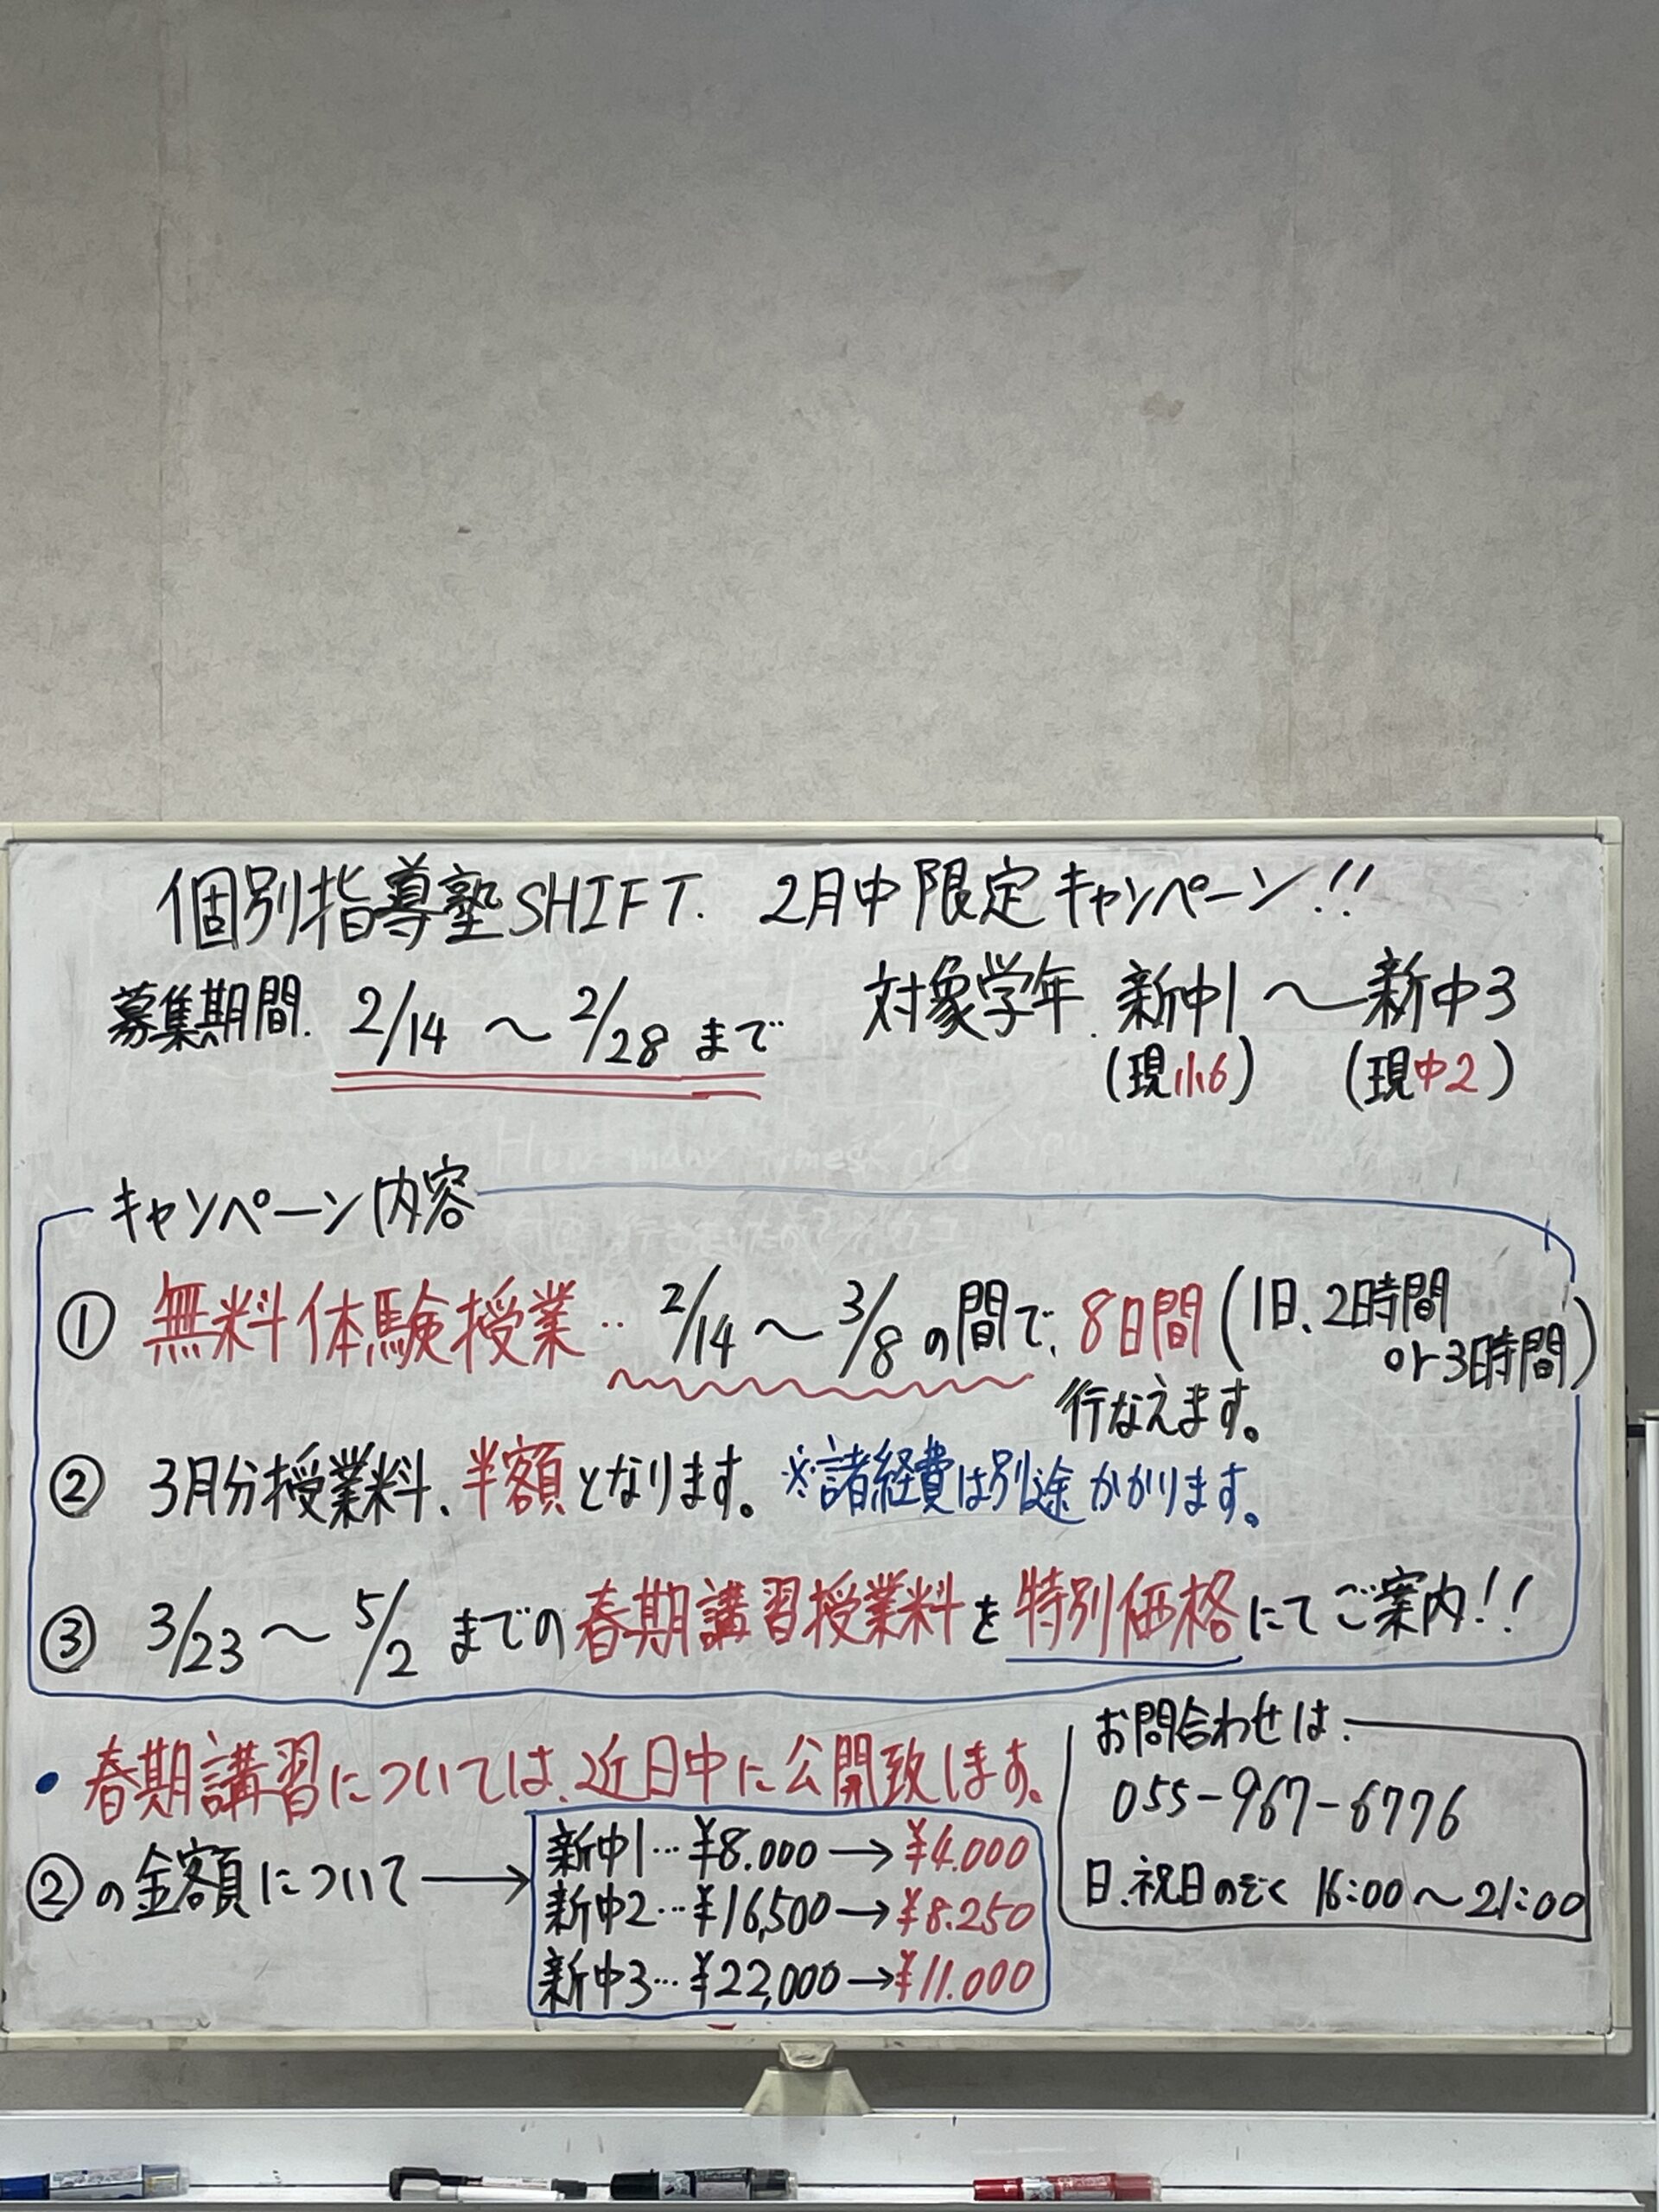 個別指導塾SHIFT. 2月中限定キャンペーン!!
募集期間. 2/14 〜 2/28 まで
対象学年. 新中1 〜 新中3
(現小6) (現中2)
キャンペーン内容
① 無料体験授業‥ 2/14 〜 3/8 の間で、8日間 (1日、2時間
or 3時間)
行なえます。
② 3月分授業料、半額となります。※諸経費は別途かかります。
③ 3/23 〜 5/2 までの春期講習授業料を特別価格にてご案内!!
・春期講習については、近日中に公開致します。
②の金額について →
新中1…¥8.000 → ¥4.000
新中2…¥16,500 → ¥8.250
新中3…¥22,000 → ¥11.000
お問合わせは:
055-967-6776
日.祝日のぞく 16:00〜21:00
How many times did you